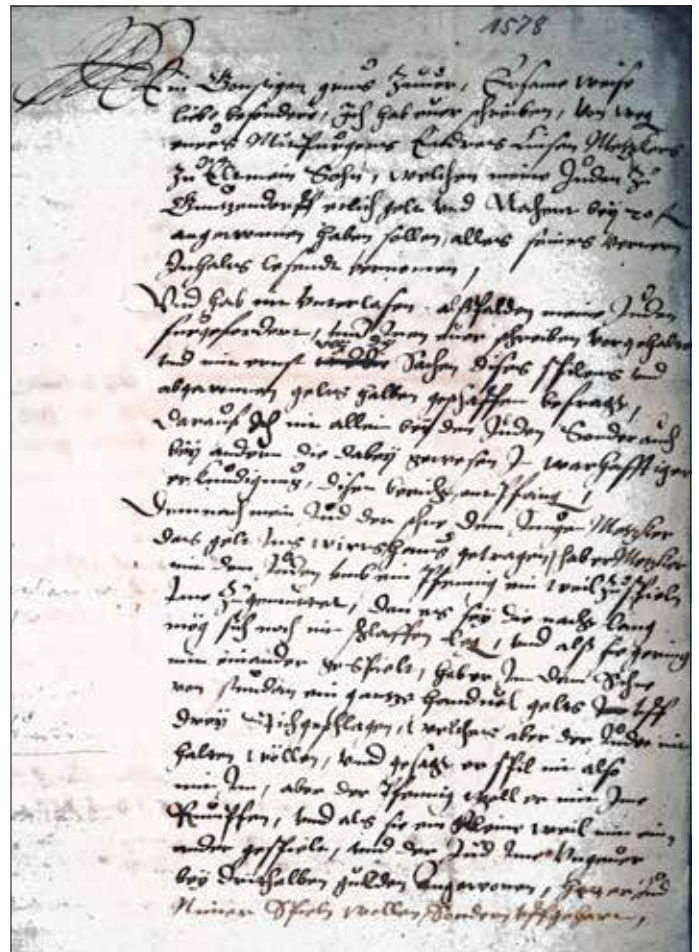 1578
Mein Gonstigen grus Zuuor, Ersame weise
liebe besondere, Ich hab euer schreiben, von weg
euers Mitburgers Endres Metzkers
Zu Sohn, welchen meine Juden Zu
etlich gelt vnd bey 20 fl
angewonnen haben sollen, alles seines
Inhalts lesendt vernomen,
Vnd hab nit vnterlasen alßbalden meine Juden
furgefordert, vnd Inen euer schreiben vorgehalten
vnd mit ernst wey dy Sachen dises spilens vnd
abgewonnen geltes halben geschaffen befragt,
Darauß Ich nit allein bey den Juden Sonder auch
bey andern die dabey gewesen In warhafftiger
erkundigung, disen bericht empfang,
Demnach mein Jud der dem Jungen Metzker
das gelt Ins wirtshaus getragen, hab er Metzker
mit dem Juden vmb ein Pfennig ein weil Zu spielen
Ime Zugemuttet, dan es sey die nacht lang
mög sich noch nit schlaffen leg, vnd alß sie gering
mit einander gespielt, hab er Im dem
von stundan ein gantze handuol geltes vff
drey geschlagen, welches aber der Jude nit
halten wöllen, vnd gesagt er spil nit also
mit Im, aber der Pfennig well er mit Ime
vnd als sie ein kleine weil mit ein,
ander gespielt, vnd der Jud Ime Vngeuer
bey drithalben gulden Angewonen, hat er Jud
Nimer Spieln wellen, Sondern vffgehort,